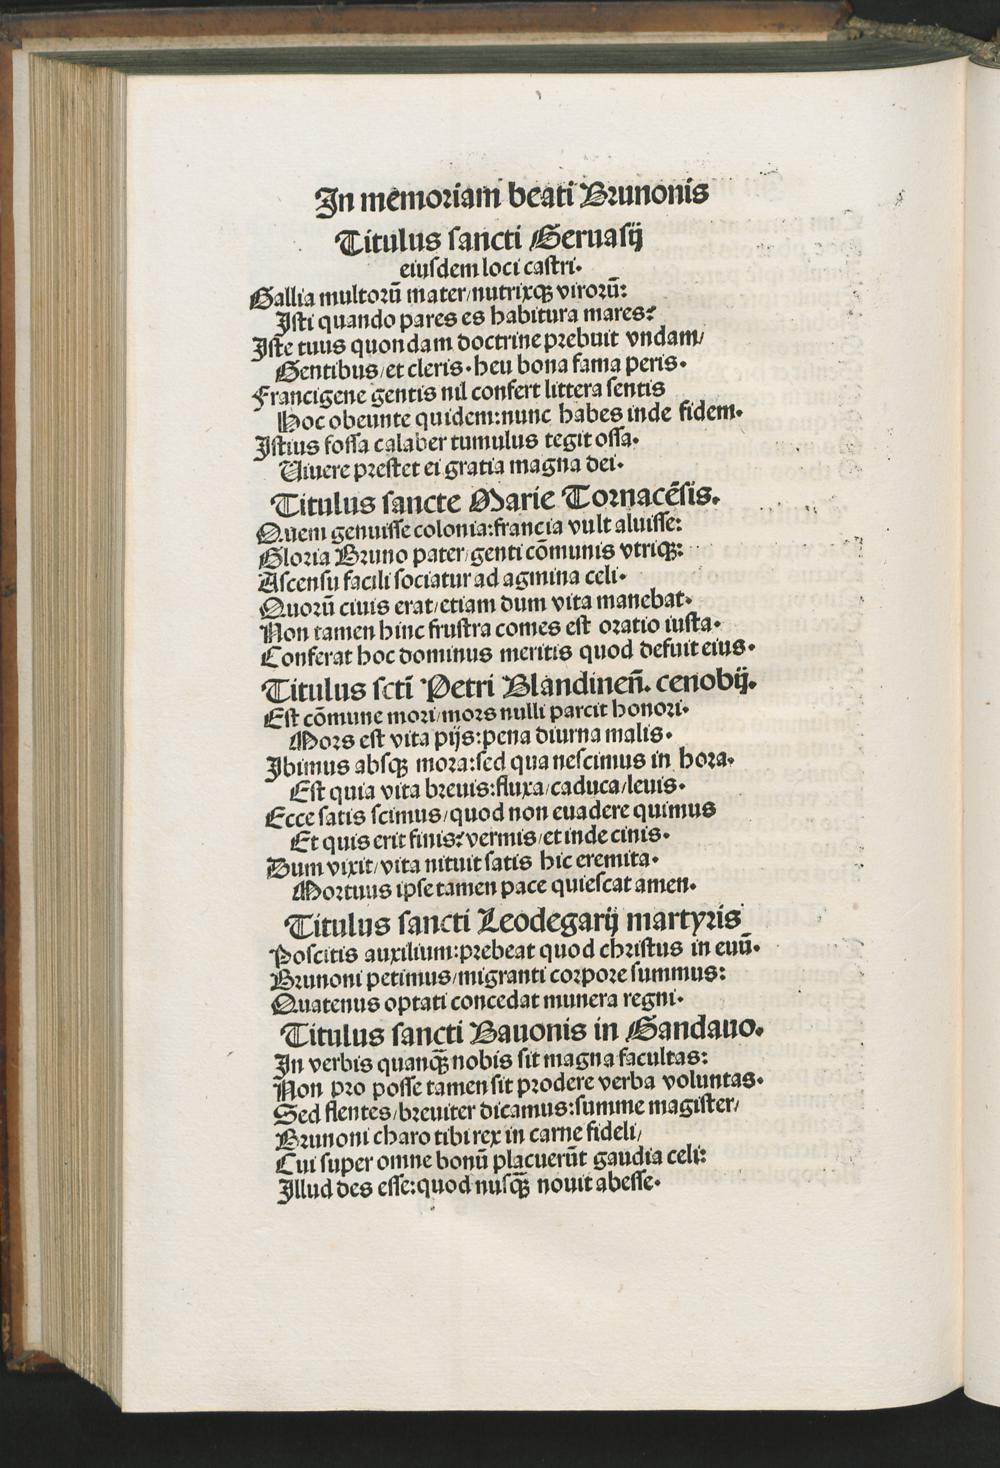 In memoriam beati Brunonis
Titulus sancti Geruasij
eiusdem loci castri.
Gallia multorū mater/nutrixqꝫ virorū:
Isti quando pares es habitura mares?
Iste tuus quondam doctrine prebuit vndam/
Gentibus/et cleris.heu bona fama peris.
Francigene gentis nil confert littera sentis
Hoc obeunte quidem:nunc habes inde fidem.
Istius fossa calaber tumulus tegit ossa.
Uiuere prestet ei gratia magna dei.
Titulus sancte Marie Tornacēsis.
Quem genuisse colonia:francia vult aluisse:
Gloria Bruno pater/genti cōmunis vtriqꝫ:
Ascensu facili sociatur ad agmina celi.
Quorū ciuis erat/etiam dum vita manebat.
Non tamen hinc frustra comes est oratio iusta.
Conferat hoc dominus meritis quod defuit eius.
Titulus scti̅ Petri Blandineñ. cenobij.
Est cōmune mori/mors nulli parcit honori.
Mors est vita pijs:pena diurna malis.
Ibimus absqꝫ mora:sed qua nescimus in hora.
Est quia vita breuis:fluxa/caduca/leuis.
Ecce satis scimus/quod non euadere quimus
Et quis erit finis?vermis/et inde cinis.
Dum vixit/vita nituit satis hic eremita.
Mortuus ipse tamen pace quiescat amen.
Titulus sancti Leodegarij martyris
Poscitis auxilium:prebeat quod christus in euū.
Brunoni petimus/migranti corpore summus:
Quatenus optati concedat munera regni.
Titulus sancti Bauonis in Gandauo.
In verbis quanqꝫ̄ nobis sit magna facultas:
Non pro posse tamen sit prodere verba voluntas.
Sed flentes/breuiter dicamus:summe magister/
Brunoni charo tibi rex in carne fideli/
Cui super omne bonū placuerūt gaudia celi:
Illud des esse:quod nusqꝫ̄ nouit abesse.